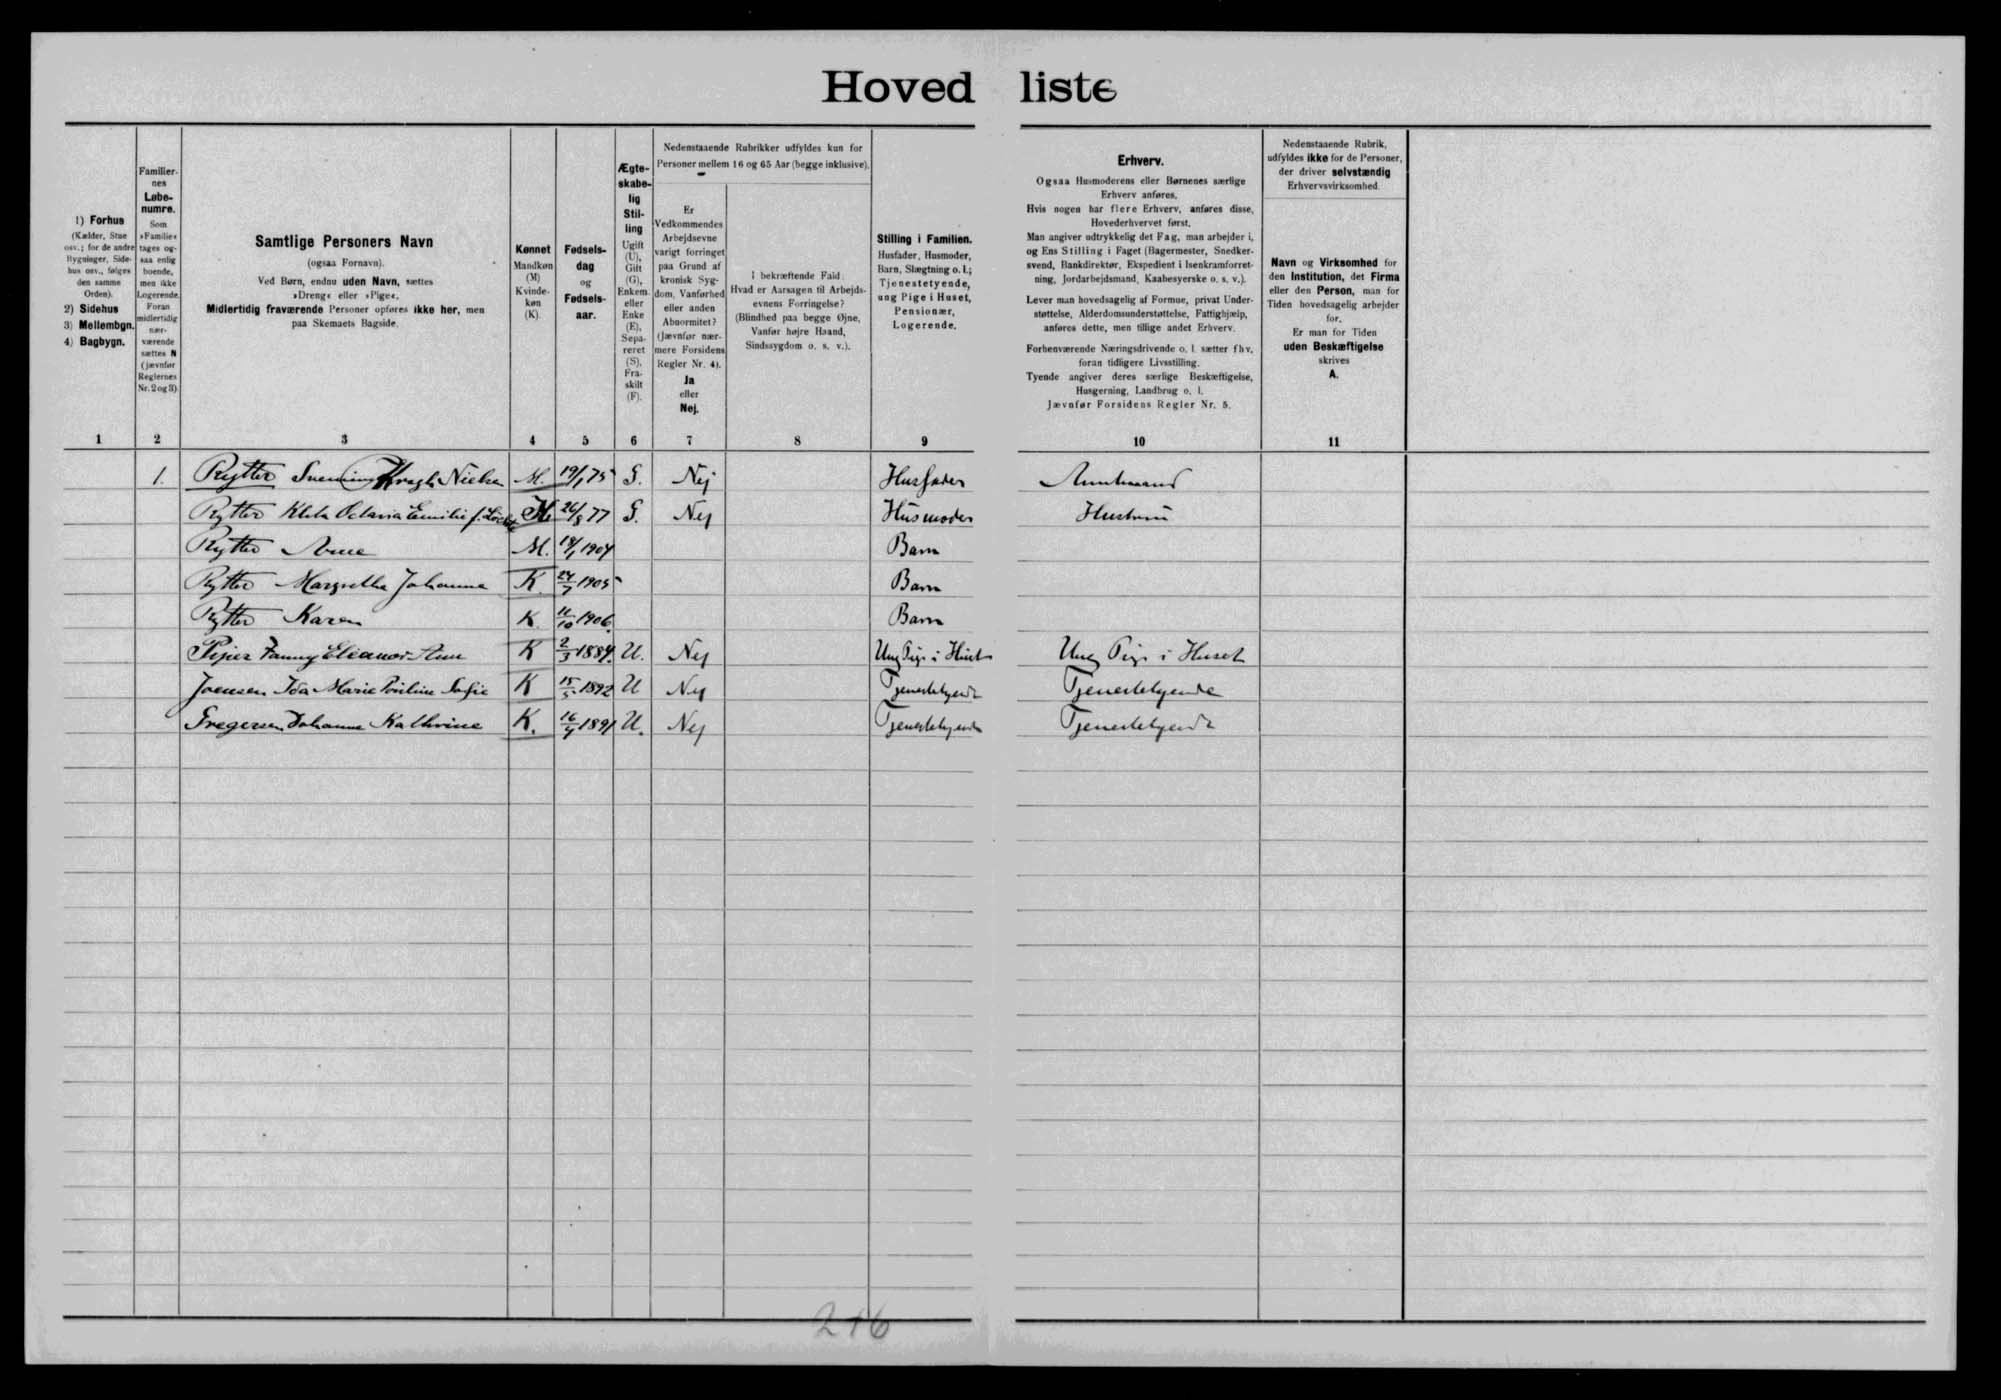 Hovedliste
1) Forhus
(Kælder, Stue
osv.; for de andre
Bygninger, Side-
hus osv., følges
den samme
Orden).
2) Sidehus
3) Mellembgn.
4) Bagbygn.
1
Familier-
nes
Løbe-
numre.
Som
»Familie«
tages og-
saa enlig
boende,
men ikke
Logerende.
Foran
midlertidig
nær-
værende
sættes N
(jævnfør
Reglernes
Nr. 2 og 3).
2
Samtlige Personers Navn
(ogsaa Fornavn).
Ved Børn, endnu uden Navn, sættes
»Dreng« eller »Pige«.
Midlertidig fraværende Personer opføres ikke her, men
paa Skemaets Bagside.
3
Kønnet
Mandkøn
(M)
Kvinde-
køn
(K).
4
Fødsels-
dag
og
Fødsels-
aar.
5
Ægte-
skabe-
lig
Stil-
ling
Ugift
(U),
Gift
(G),
Enkem.
eller
Enke
(E),
Sepa-
reret
(S),
Fra-
skilt
(F).
6
Nedenstaaende Rubrikker udfyldes kun for
Personer mellem 16 og 65 Aar (begge inklusive).
Er
Vedkommendes
Arbejdsevne
varigt forringet
paa Grund af
kronisk Syg-
dom, Vanførhed
eller anden
Abnormitet?
(Jævnfør nær-
mere Forsidens
Regler Nr. 4).
Ja
eller
Nej.
7
I bekræftende Fald:
Hvad er Aarsagen til Arbejds-
evnens Forringelse?
(Blindhed paa begge Øjne,
Vanfør højre Haand,
Sindssygdom o. s. v.).
8
Stilling i Familien.
Husfader, Husmoder,
Barn, Slægtning o. l.;
Tjenestetyende,
ung Pige i Huset,
Pensionær,
Logerende.
9
Erhverv.
Ogsaa Husmoderens eller Børnenes særlige
Erhverv anføres.
Hvis nogen har flere Erhverv, anføres disse,
Hovederhvervet først.
Man angiver udtrykkelig det Fag, man arbejder i,
og Ens Stilling i Faget (Bagermester, Snedker-
svend, Bankdirektør, Ekspedient i Isenkramforret-
ning, Jordarbejdsmand, Kaabesyerske o. s. v.).
Lever man hovedsagelig af Formue, privat Under-
støttelse, Alderdomsunderstøttelse, Fattighjælp,
anføres dette, men tillige andet Erhverv.
Forhenværende Næringsdrivende o. l. sætter fhv.
foran tidligere Livsstilling.
Tyende angiver deres særlige Beskæftigelse,
Husgerning, Landbrug o. l.
Jævnfør Forsidens Regler Nr. 5.
10
Nedenstaaende Rubrik,
udfyldes ikke for de Personer,
der driver selvstændig
Erhvervsvirksomhed.
Navn og Virksomhed for
den Institution, det Firma
eller den Person, man for
Tiden hovedsagelig arbejder
for.
Er man for Tiden
uden Beskæftigelse
skrives
A.
11
1. Rytter Svenning Kragh Nielsen M. 19/1 75 G. Nej Husfader Amtmand
Rytter Octavia Emilie f. K 26/8 77 G. Nej Husmoder Hustru
Rytter Arne M. 18/1 1904 Barn
Rytter Margrethe Johanne K. 24/7 1905 Barn
Rytter Karen K. 11/10 1906 Barn
Fanny Eleanor Ann K 2/3 1884. U. Nej Ung Pige i Huset Ung Pige i Huset
Joensen Ida Marie Sofie K 15/5 1892 U Nej Tjenestetyende Tjenestetyende
Gregersen Johanne Kathrine K. 16/4 1891 U. Nej Tjenestetyende Tjenestetyende
246